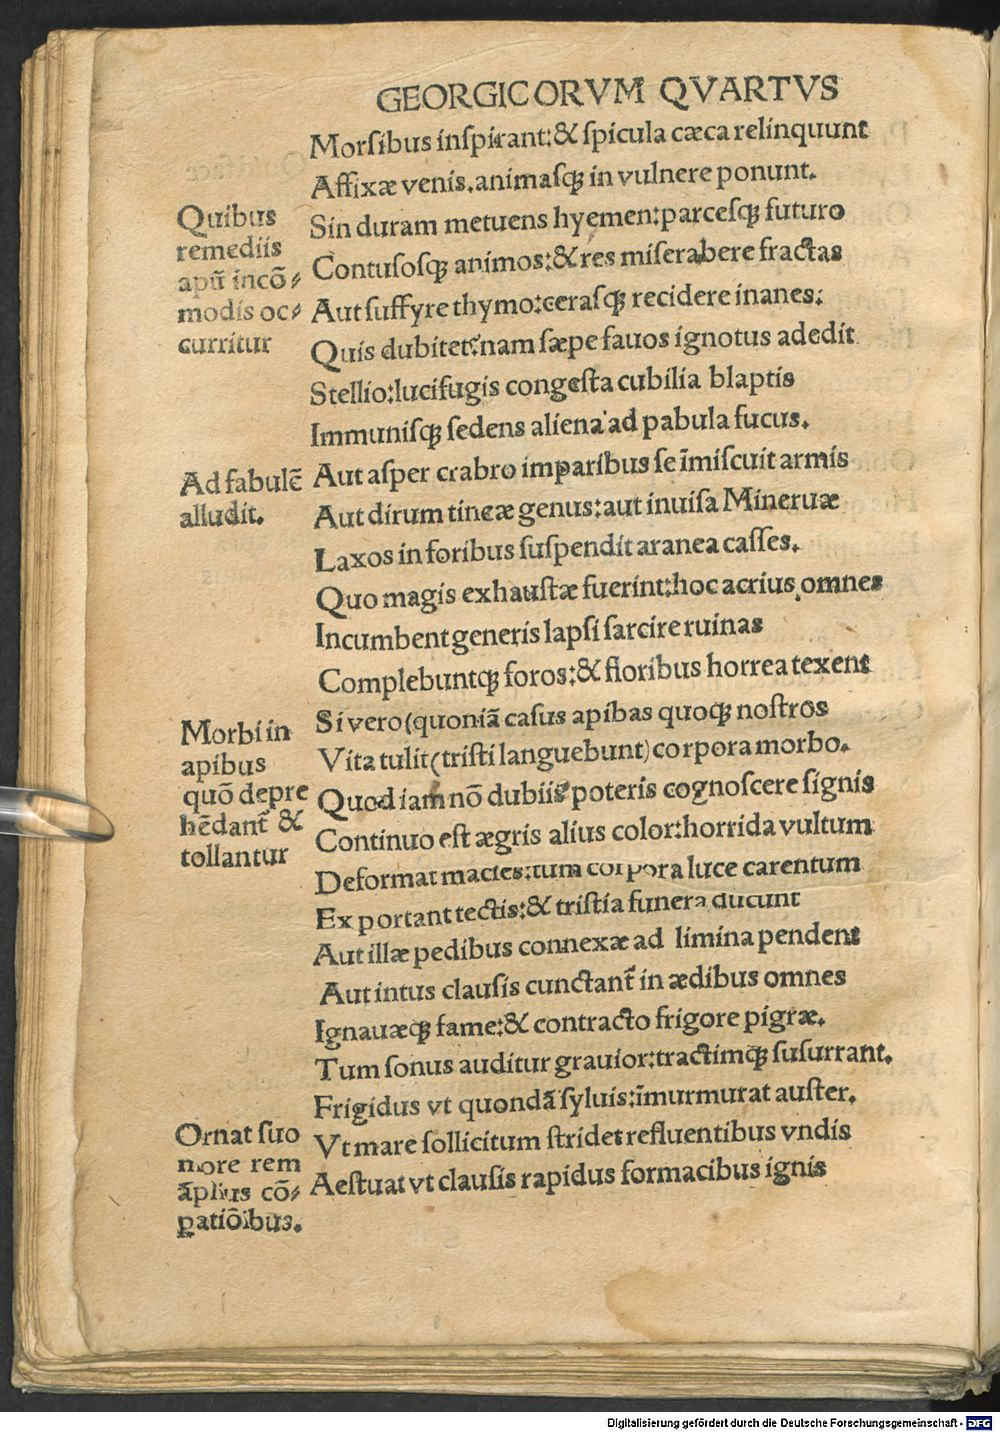 GEORGICORVM QVARTVS
Morſibus inſpirant:& ſpicula cæca relinquunt
Affixæ venis.animaſqꝫ in vulnere ponunt.
Sin duram metuens hyemen:parceſqꝫ futuro
Contuſoſqꝫ animos:& res miſerabere fractas
Aut ſuffyre thymo:ceraſqꝫ recidere inanes:
Quis dubitet:nam ſæpe fauos ignotus adedit
Stellio:lucifugis congeſta cubilia blaptis
Immuniſqꝫ ſedens aliena ad pabula fucus.
Aut aſper crabro imparibus ſe īmiſcuit armis
Aut dirum tineæ genus:aut inuiſa Mineruæ
Laxos in foribus ſuſpendit aranea caſſes.
Quo magis exhauſtæ fuerint:hoc acrius omnes
Incumbent generis lapſi ſarcire ruinas
Complebuntqꝫ foros:& floribus horrea texent
Si vero(quoniā caſus apibas quoqꝫ noſtros
Vita tulit(triſti languebunt)corpora morbo.
Quod iam nō dubiis poteris cognoſcere ſignis
Continuo eſt ægris alius color:horrida vultum
Deformat macies:tum corpora luce carentum
Exportant tectis:& triſtia funera ducunt
Aut illæ pedibus connexæ ad limina pendent
Aut intus clauſis cunctant̄ in ædibus omnes
Ignauæqꝫ fame:& contracto frigore pigræ.
Tum ſonus auditur grauior:tractimqꝫ ſuſurrant.
Frigidus vt quondā ſyluis:īmurmurat auſter.
Vt mare ſollicitum ſtridet refluentibus vndis
Aeſtuat vt clauſis rapidus formacibus ignis
Quibus
remediis
apū incō⸗
modis oc⸗
curritur
Ad fabulē
alludit.
Morbi in
apibus
quō depre
hēdant̄ &
tollantur
Ornat ſuo
more rem
āplius cō⸗
ꝑatiōibus.
Digitalisierung gefördert durch die Deutsche Forschungsgemeinschaft - DFG